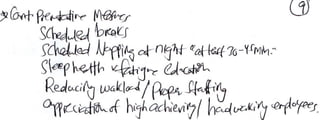 9
* Cont Preventative Measures
Scheduled breaks
Scheduled Napping at night "at least 20-45min."
Sleep health & fatigue Education
Reducing workload / Proper Staffing
appreciation of high achieving / hardworking employees.